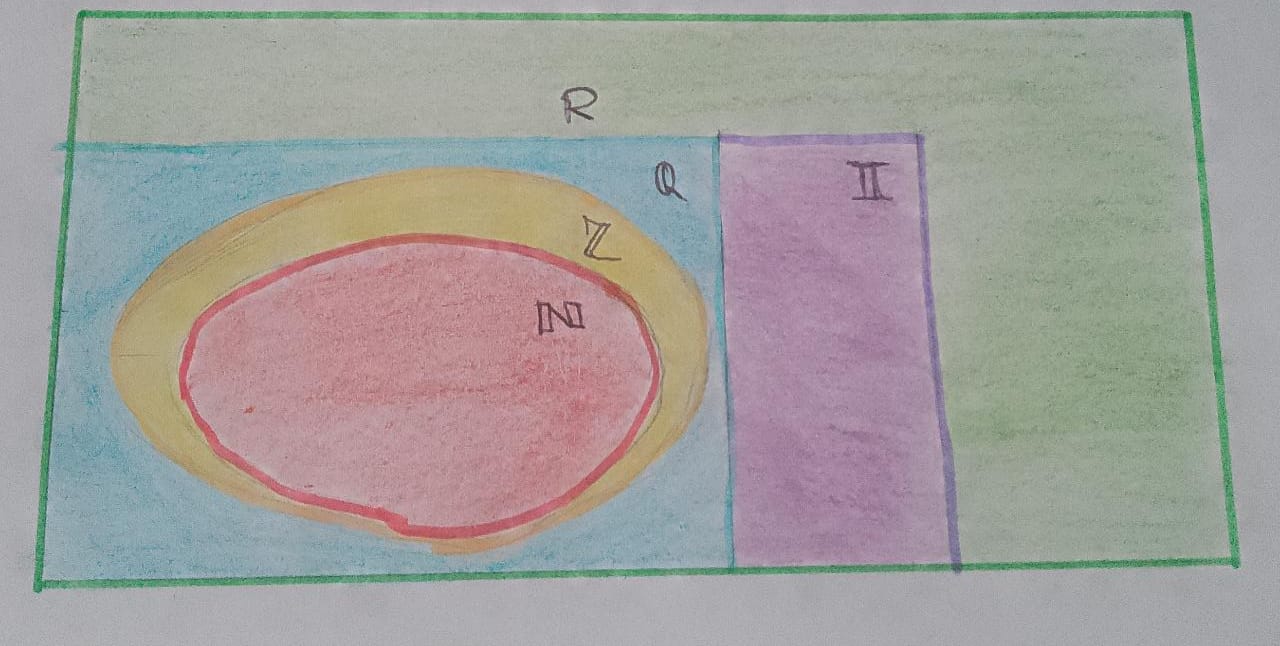 R
Q
II
Z
N